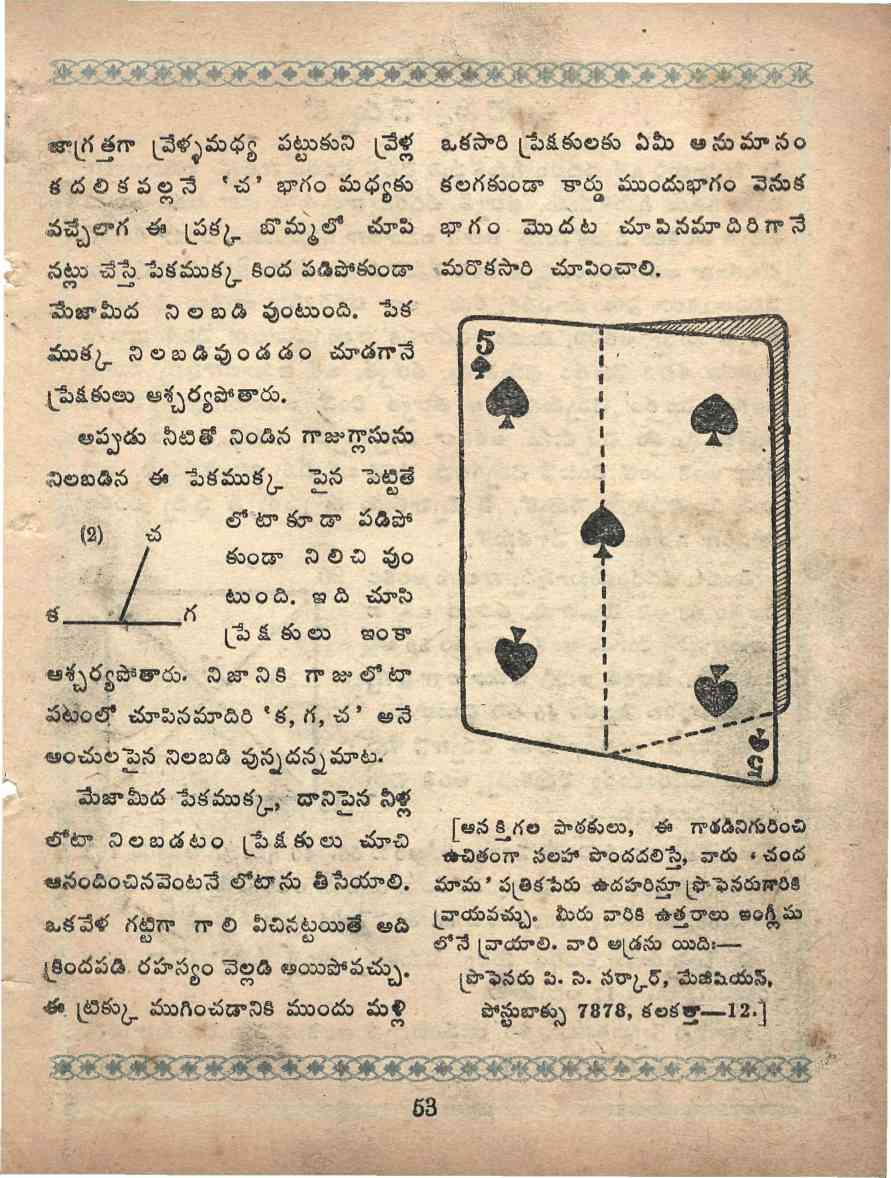 జాగ్రత్తగా వ్రేళ్ళమధ్య పట్టుకుని వ్రేళ్ల
కదలికవల్లనే ‘చ’ భాగం మధ్యకు
వచ్చేలాగ ఈ ప్రక్క బొమ్మలో చూపి
నట్లు చేస్తే పేకముక్క కింద పడిపోకుండా
మేజామీద నిలబడి వుంటుంది. పేక
ముక్క నిలబడివుండడం చూడగానే
ప్రేక్షకులు ఆశ్చర్యపోతారు.
అప్పుడు నీటితో నిండిన గాజుగ్లాసును
నిలబడిన ఈ పేకముక్క పైన పెట్టితే
లోటాకూడా పడిపో
కుండా నిలిచి వుం
టుంది. ఇది చూసి
ప్రేక్షకులు ఇంకా
(2) చ
క గ
ఆశ్చర్యపోతారు. నిజానికి గాజులోటా
పటంలో చూపినమాదిరి ‘క, గ, చ’ అనే
అంచులపైన నిలబడి వున్నదన్నమాట.
మేజామీద పేకముక్క, దానిపైన నీళ్ల
లోటా నిలబడటం ప్రేక్షకులు చూచి
ఆనందించినవెంటనే లోటాను తీసేయాలి.
ఒకవేళ గట్టిగా గాలి వీచినట్టయితే అది
క్రిందపడి రహస్యం వెల్లడి అయిపోవచ్చు.
ఈ ట్రిక్కు ముగించడానికి ముందు మళ్లీ
ఒకసారి ప్రేక్షకులకు ఏమీ అనుమానం
కలగకుండా కార్డు ముందుభాగం వెనుక
భాగం మొదట చూపినమాదిరిగానే
మరొకసారి చూపించాలి.
5
5
[ఆసక్తిగల పాఠకులు, ఈ గారడినిగురించి
ఉచితంగా సలహా పొందదలిస్తే, వారు ‘చంద
మామ’ పత్రికపేరు ఉదహరిస్తూ ప్రొఫెసరుగారికి
వ్రాయవచ్చు. మీరు వారికి ఉత్తరాలు ఇంగ్లీషు
లోనే వ్రాయాలి. వారి అడ్రసు యిది:—
ప్రొఫెసరు పి. సి. సర్కార్, మేజిషియన్,
పోస్టుబాక్సు 7878, కలకత్తా—12.]
53